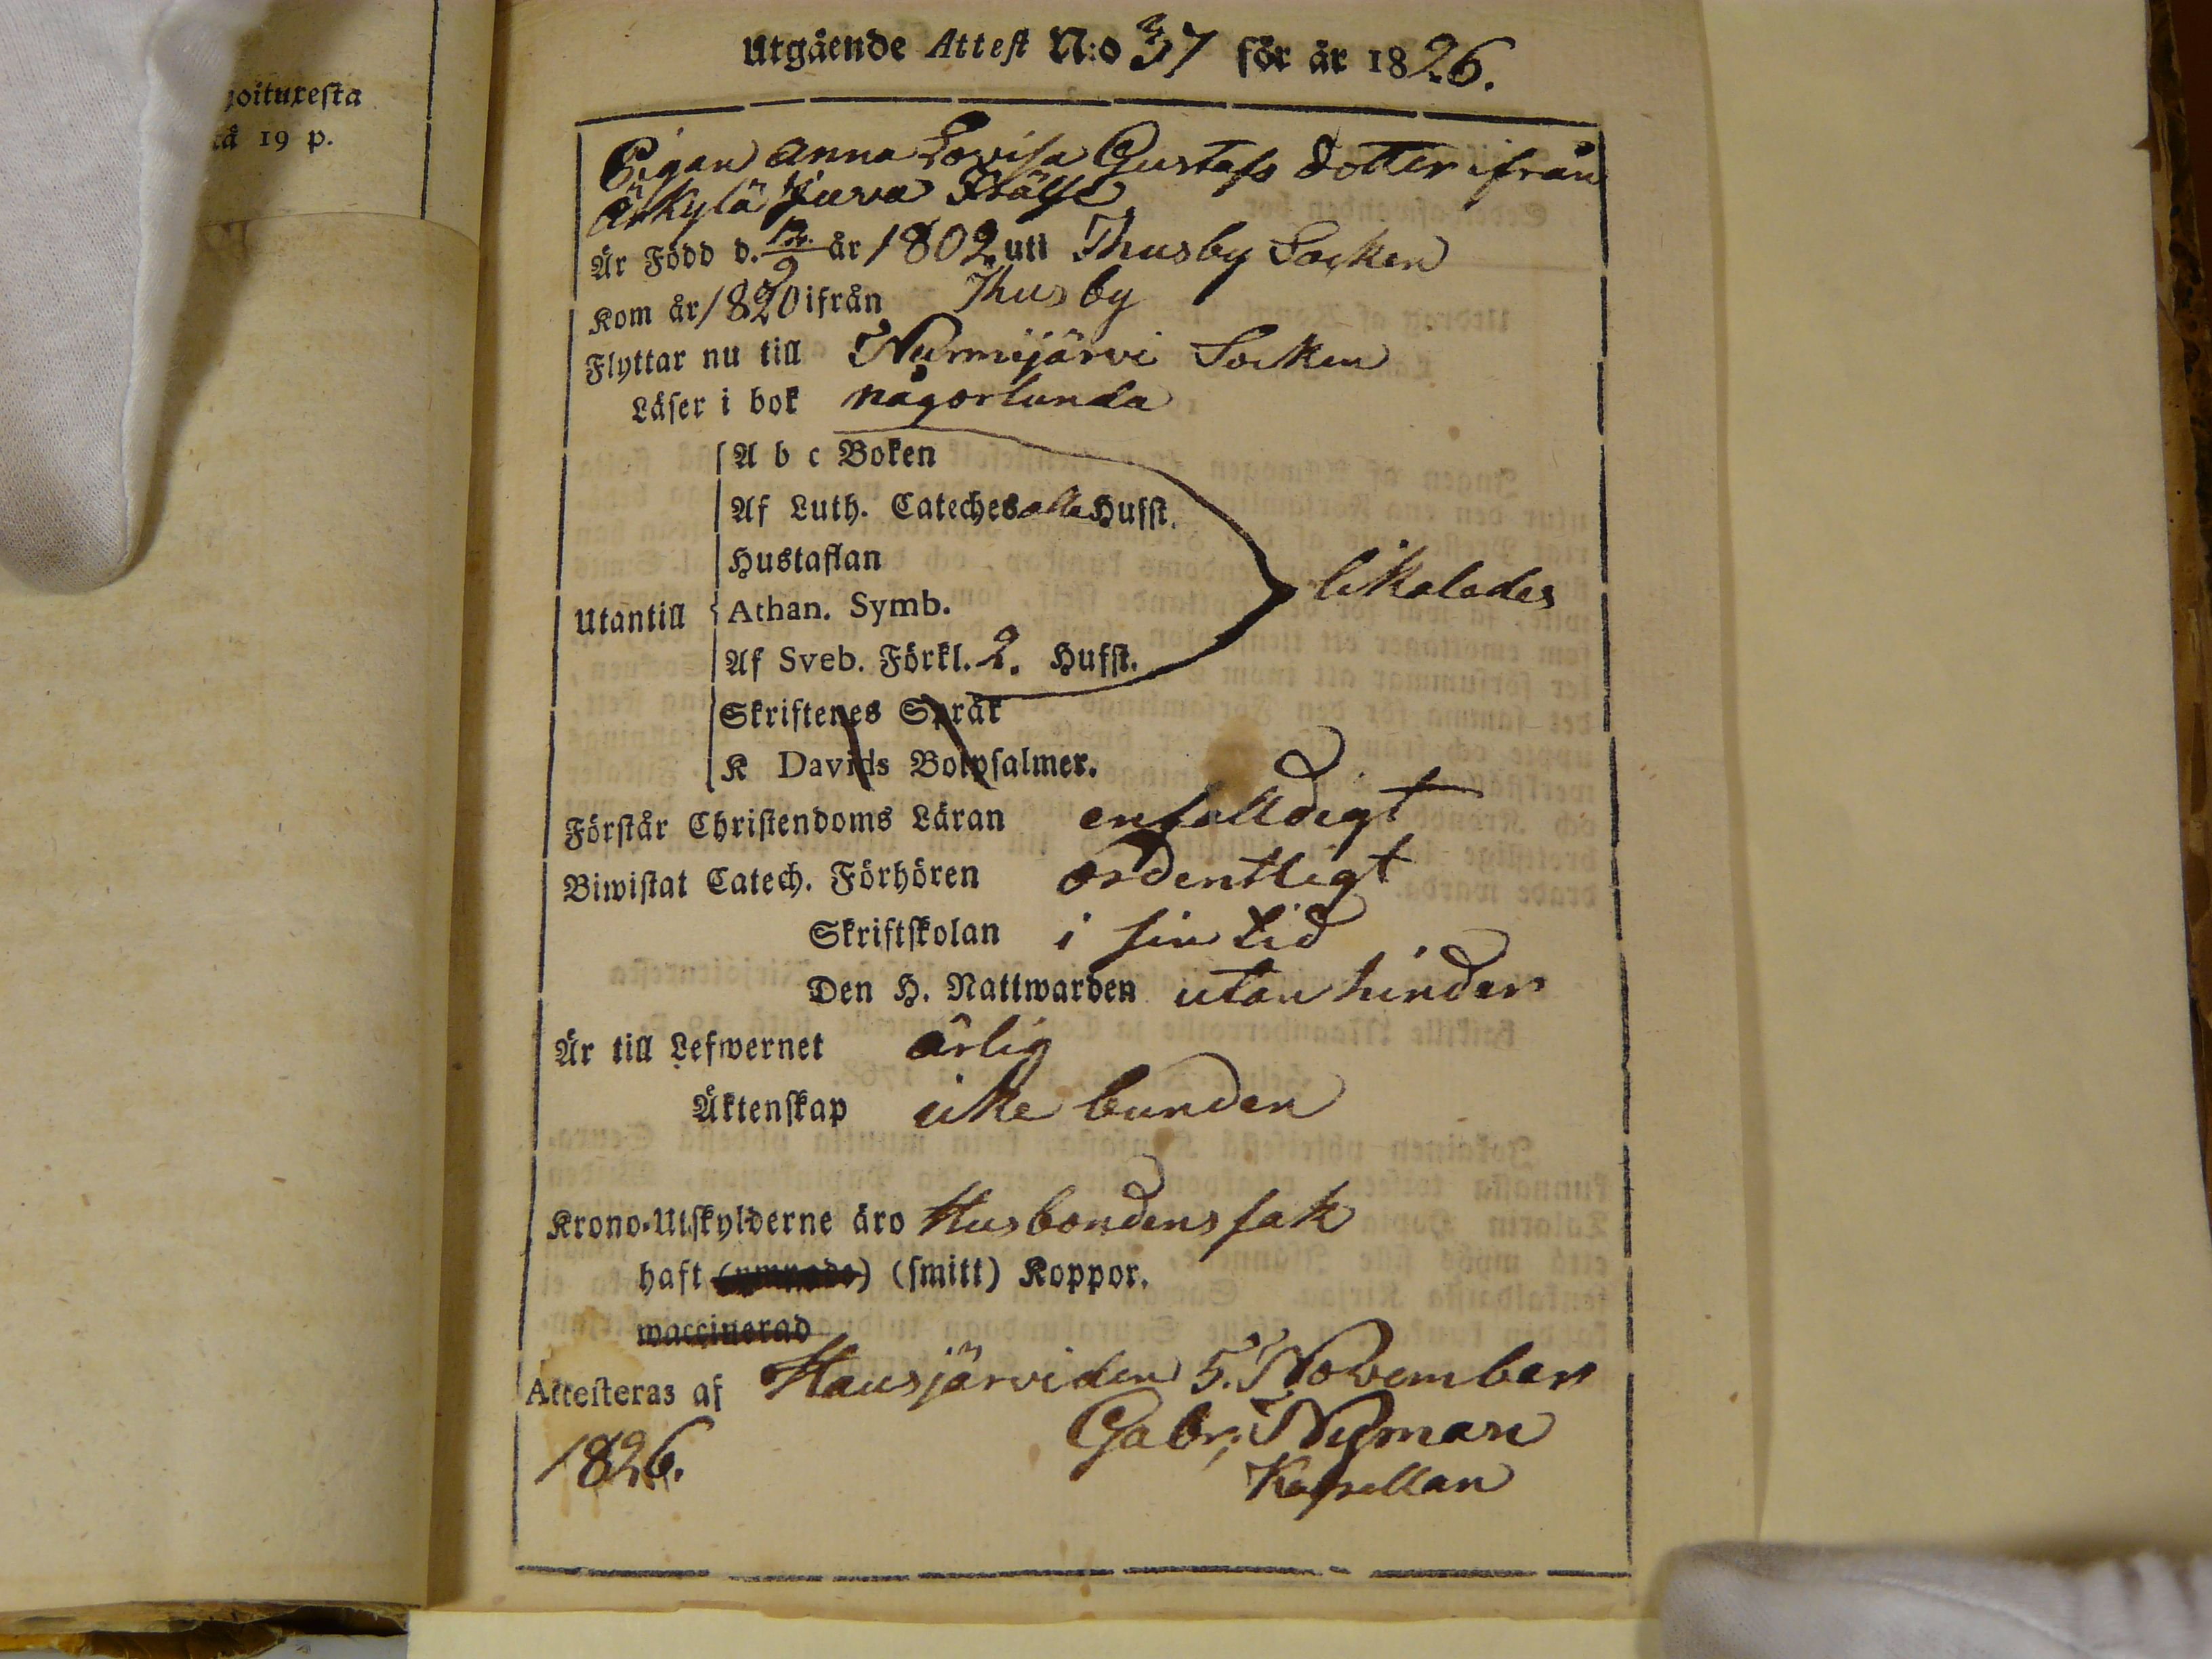 joituxesta
tå 19 p.
Utgående Attest N:o 37 för år 1826.
Pigan Anna Lovisa Gustafs dotter ifrån
Äikylä Juva Frälse
Är Född d. 12/9 år 1802 uti Thusby Socken
Kom år 1820 ifrån Thusby
Flyttar nu till Nurmijärvi Socken
Läser i bok någorlunda
A b c Boken
Af Luth. Cateches alla Hufst.
Hustaflan
Utantill Athan. Symb. likaledes
Af Sveb. Förkl. 2. Hufst.
Skriftenes Språk
K Davids Botpsalmer.
Förstår Christendoms Läran enfalldigt
Biwistat Catech. Förhören ordentligt
Skriftskolan i sin tid
Den H. Nattwarden utan hinder
Är till Lefwernet ärlig
Äktenskap icke bunden
Krono-Utskylderne äro Husbondens sak
haft (ymnade) (smitt) Koppor.
waccinerad
Attesteras af Hausjärvi den 5. November
1826. Gabr: Nyman
Kapellan